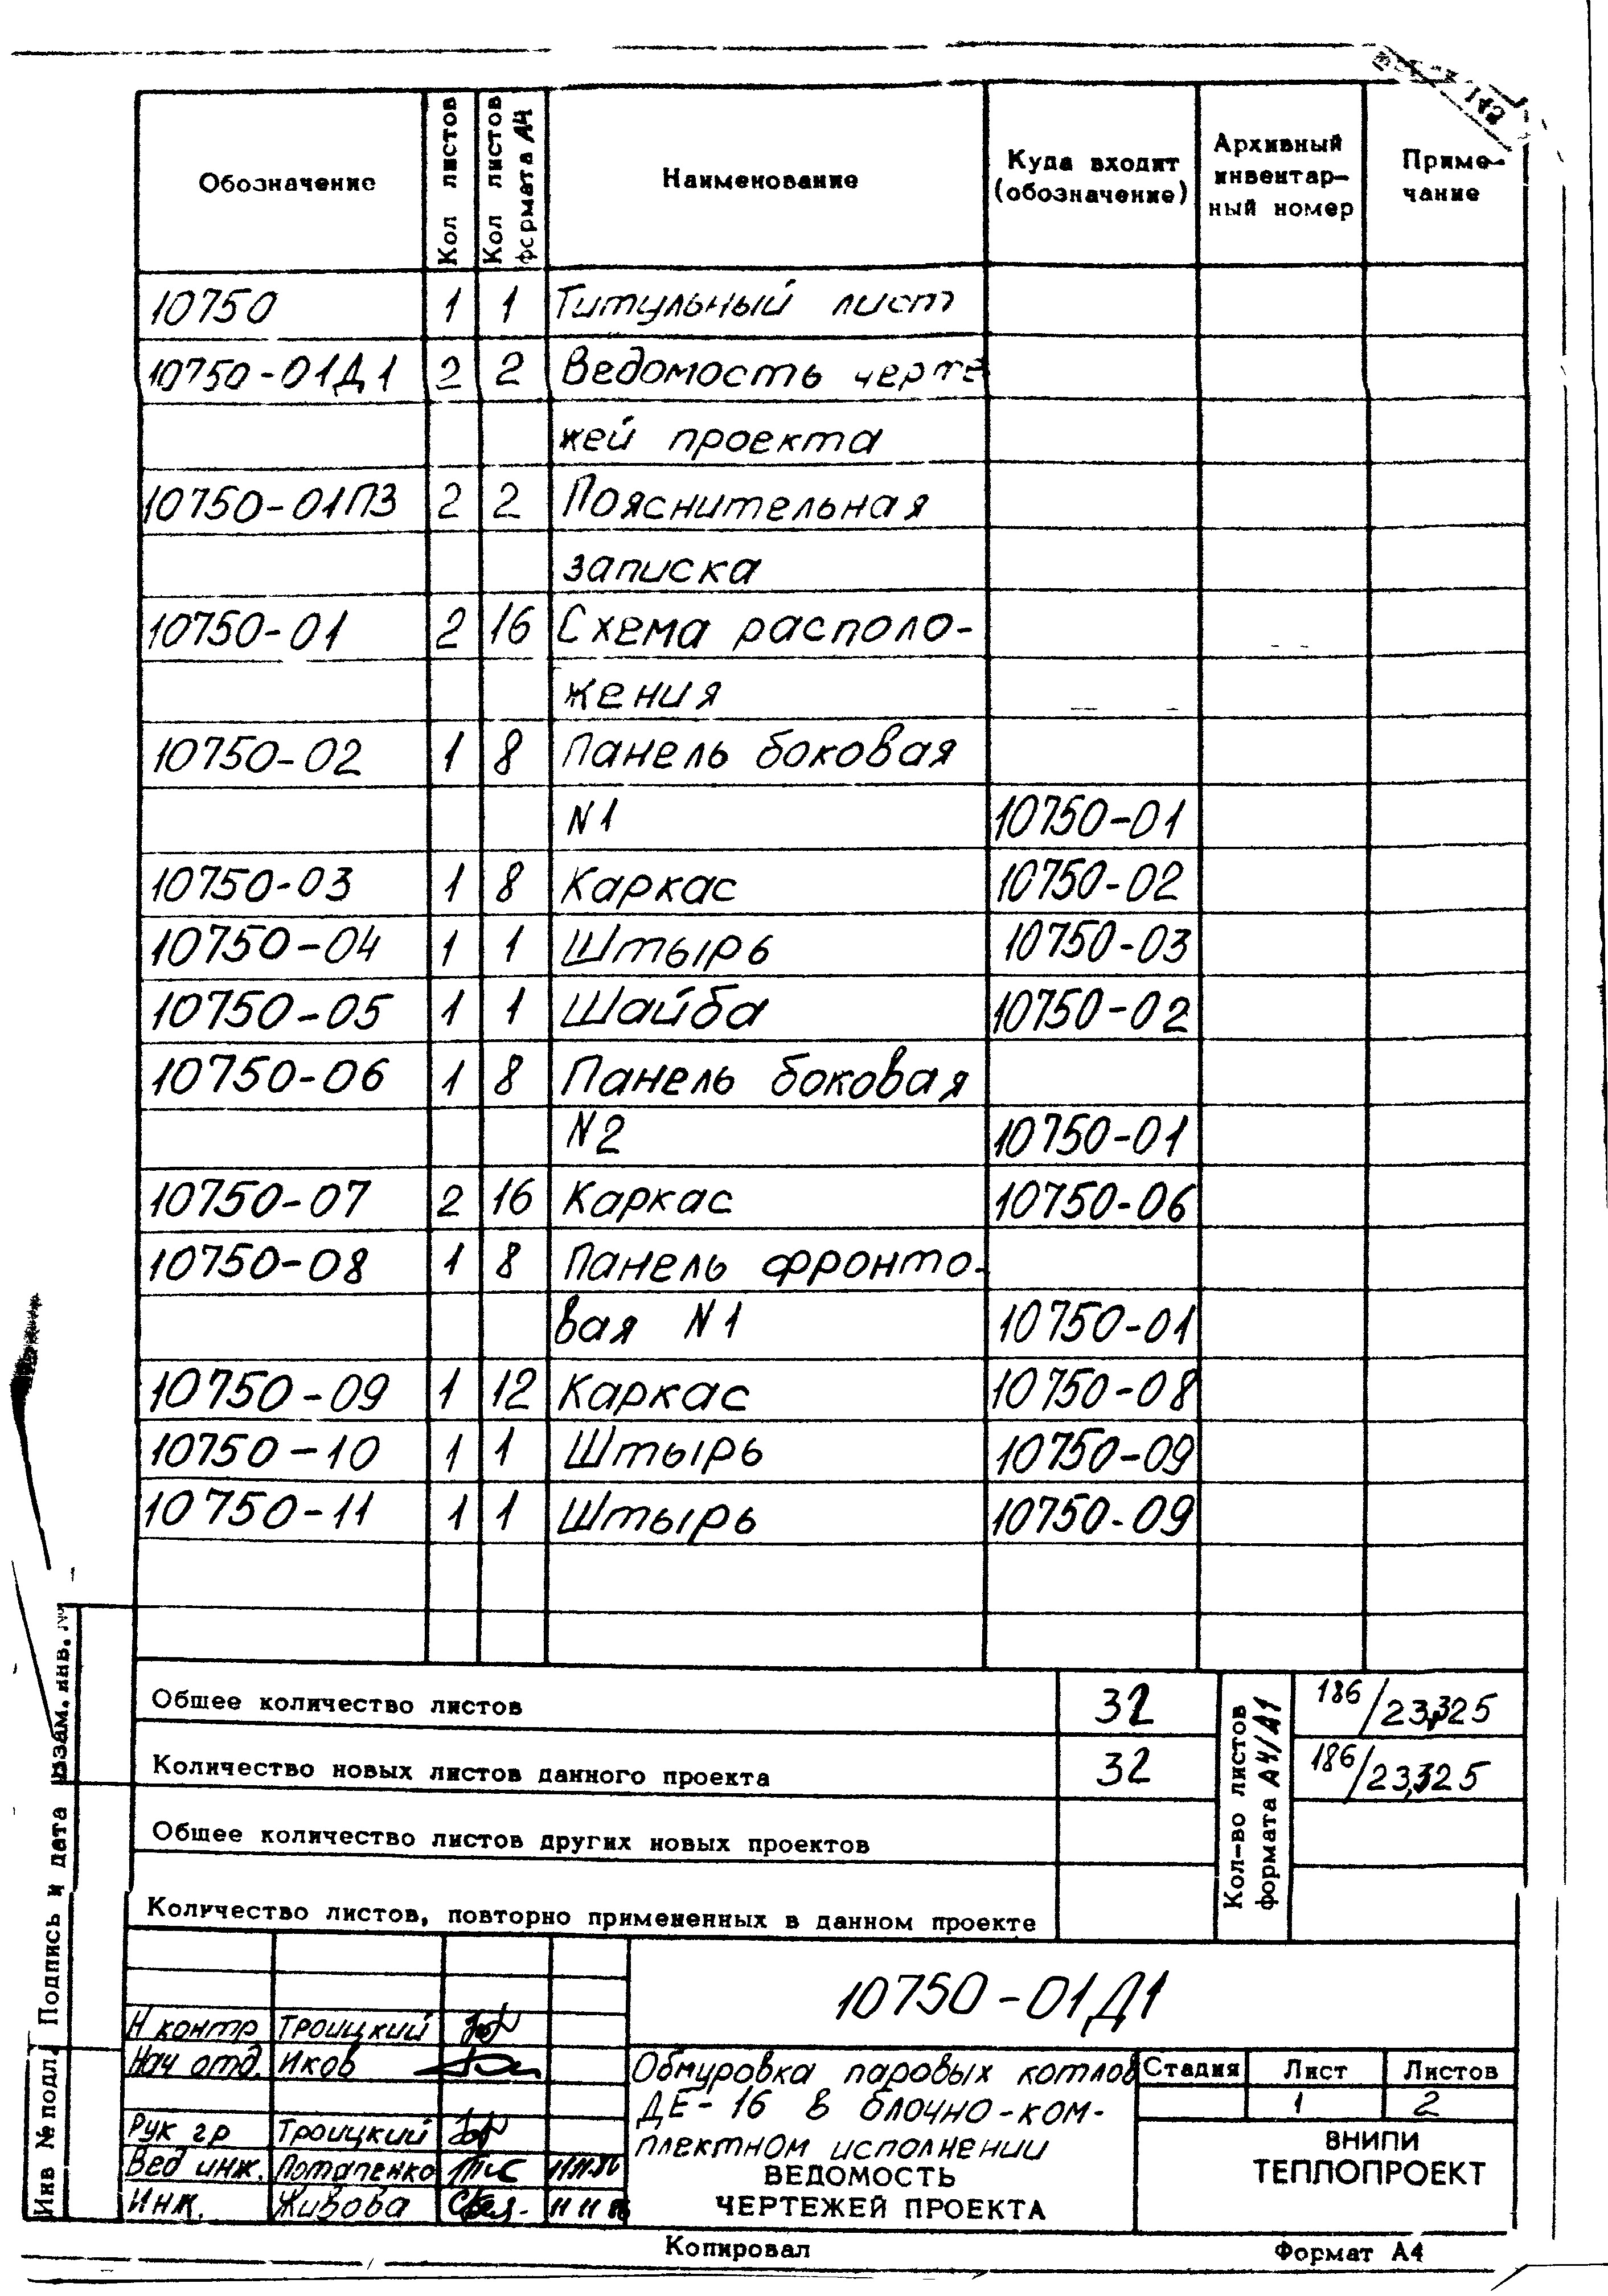 Обозначение | Кол листов | Кол листов формата А4 | Наименование | Куда входит (обозначение) | Архивный инвентар-ный номер | Приме-чание
10750 1 1 Титульный лист
10750-01Д1 2 2 Ведомость черте
жей проекта
10750-01ПЗ 2 2 Пояснительная
записка
10750-01 2 16 Схема располо-
жения
10750-02 1 8 Панель боковая
N1 10750-01
10750-03 1 8 Каркас 10750-02
10750-04 1 1 Штырь 10750-03
10750-05 1 1 Шайба 10750-02
10750-06 1 8 Панель боковая
N2 10750-01
10750-07 2 16 Каркас 10750-06
10750-08 1 8 Панель фронто-
вая N1 10750-01
10750-09 1 12 Каркас 10750-08
10750-10 1 1 Штырь 10750-09
10750-11 1 1 Штырь 10750-09
Общее количество листов 32 186/23,325
Количество новых листов данного проекта 32 186/23,325
Общее количество листов других новых проектов
Количество листов, повторно примененных в данном проекте
Кол-во листов
формата А4/А1
Инв № подл. Подпись и дата Взам. инв. №
10750-01Д1
Н контр Троицкий
Нач отд. Иков
Рук гр Троицкий
Вед инж. Потапенко 11.11.86
Инж. Живова 11 11 86
Обмуровка паровых котлов
ДЕ-16 в блочно-ком-
плектном исполнении
ВЕДОМОСТЬ
ЧЕРТЕЖЕЙ ПРОЕКТА
Стадия Лист Листов
1 2
ВНИПИ
ТЕПЛОПРОЕКТ
Копировал Формат А4